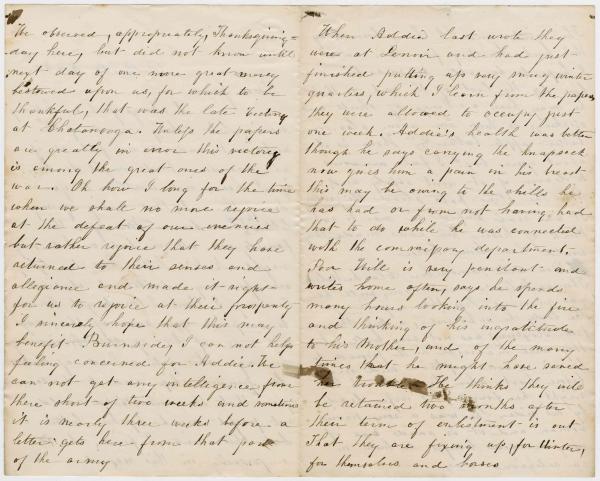 We observed, appropriately, Thanksgiving=
day here, but did not know until
next day of one more great mercy
bestowed upon us, for which to be
thankful, that was the late Victory
at Chatanooga. Unless the papers
are greatly in error this victory
is among the great ones of the
war. Oh how I long for the time
when we shall no more rejoice
at the defeat of our enemies
but rather rejoice that they have
returned to their senses and
allegiance and made it right
for us to rejoice at their prosperity
I sincerely hope that this may
benefit Burnside, I can not help
feeling concerned for Addie. We
can not get any intelligence from
there short of two weeks and sometimes
it is nearly three weeks before a
letter gets here from that part
of the army
When Addie last wrote they
were at Lenoir and had just
finished putting up very snug winter
quarters, which I learn from the papers
they were allowed to occupy just
one week. Addie's health was better
though he says carrying the knapsack
now gives him a pain in his breast
this may be owing to the chills he
has had or from not having had
that to do while he was connected
with the commissary department.
Poor Will is very penitent and
writes home often, says he spends
many hours looking into the fire
and thinking of his ingratitude
to his Mother, and of the many
times that he might have saved
her trouble. He thinks they will
be retained two months after
their term of enlistment is out
That they are fixing up, for Winter,
for themselves and horses